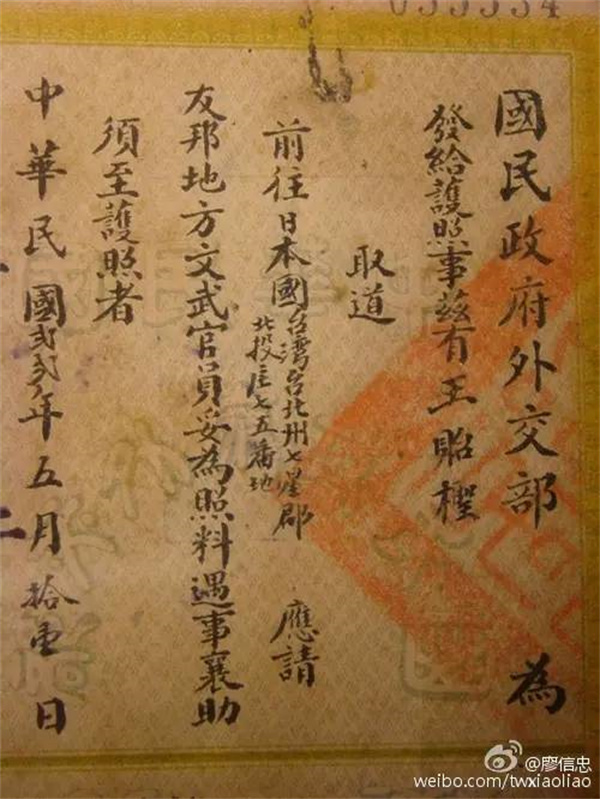 國民政府外交部 為
發給護照事茲有王貽
取道
前往日本國台湾台北州七星郡
北投庄七五番地 應請
友邦地方文武官員妥為照料遇事襄助
須至護照者
中華民國貳貳年五月拾壹日
@廖信忠
weibo.com/twxiaoliao